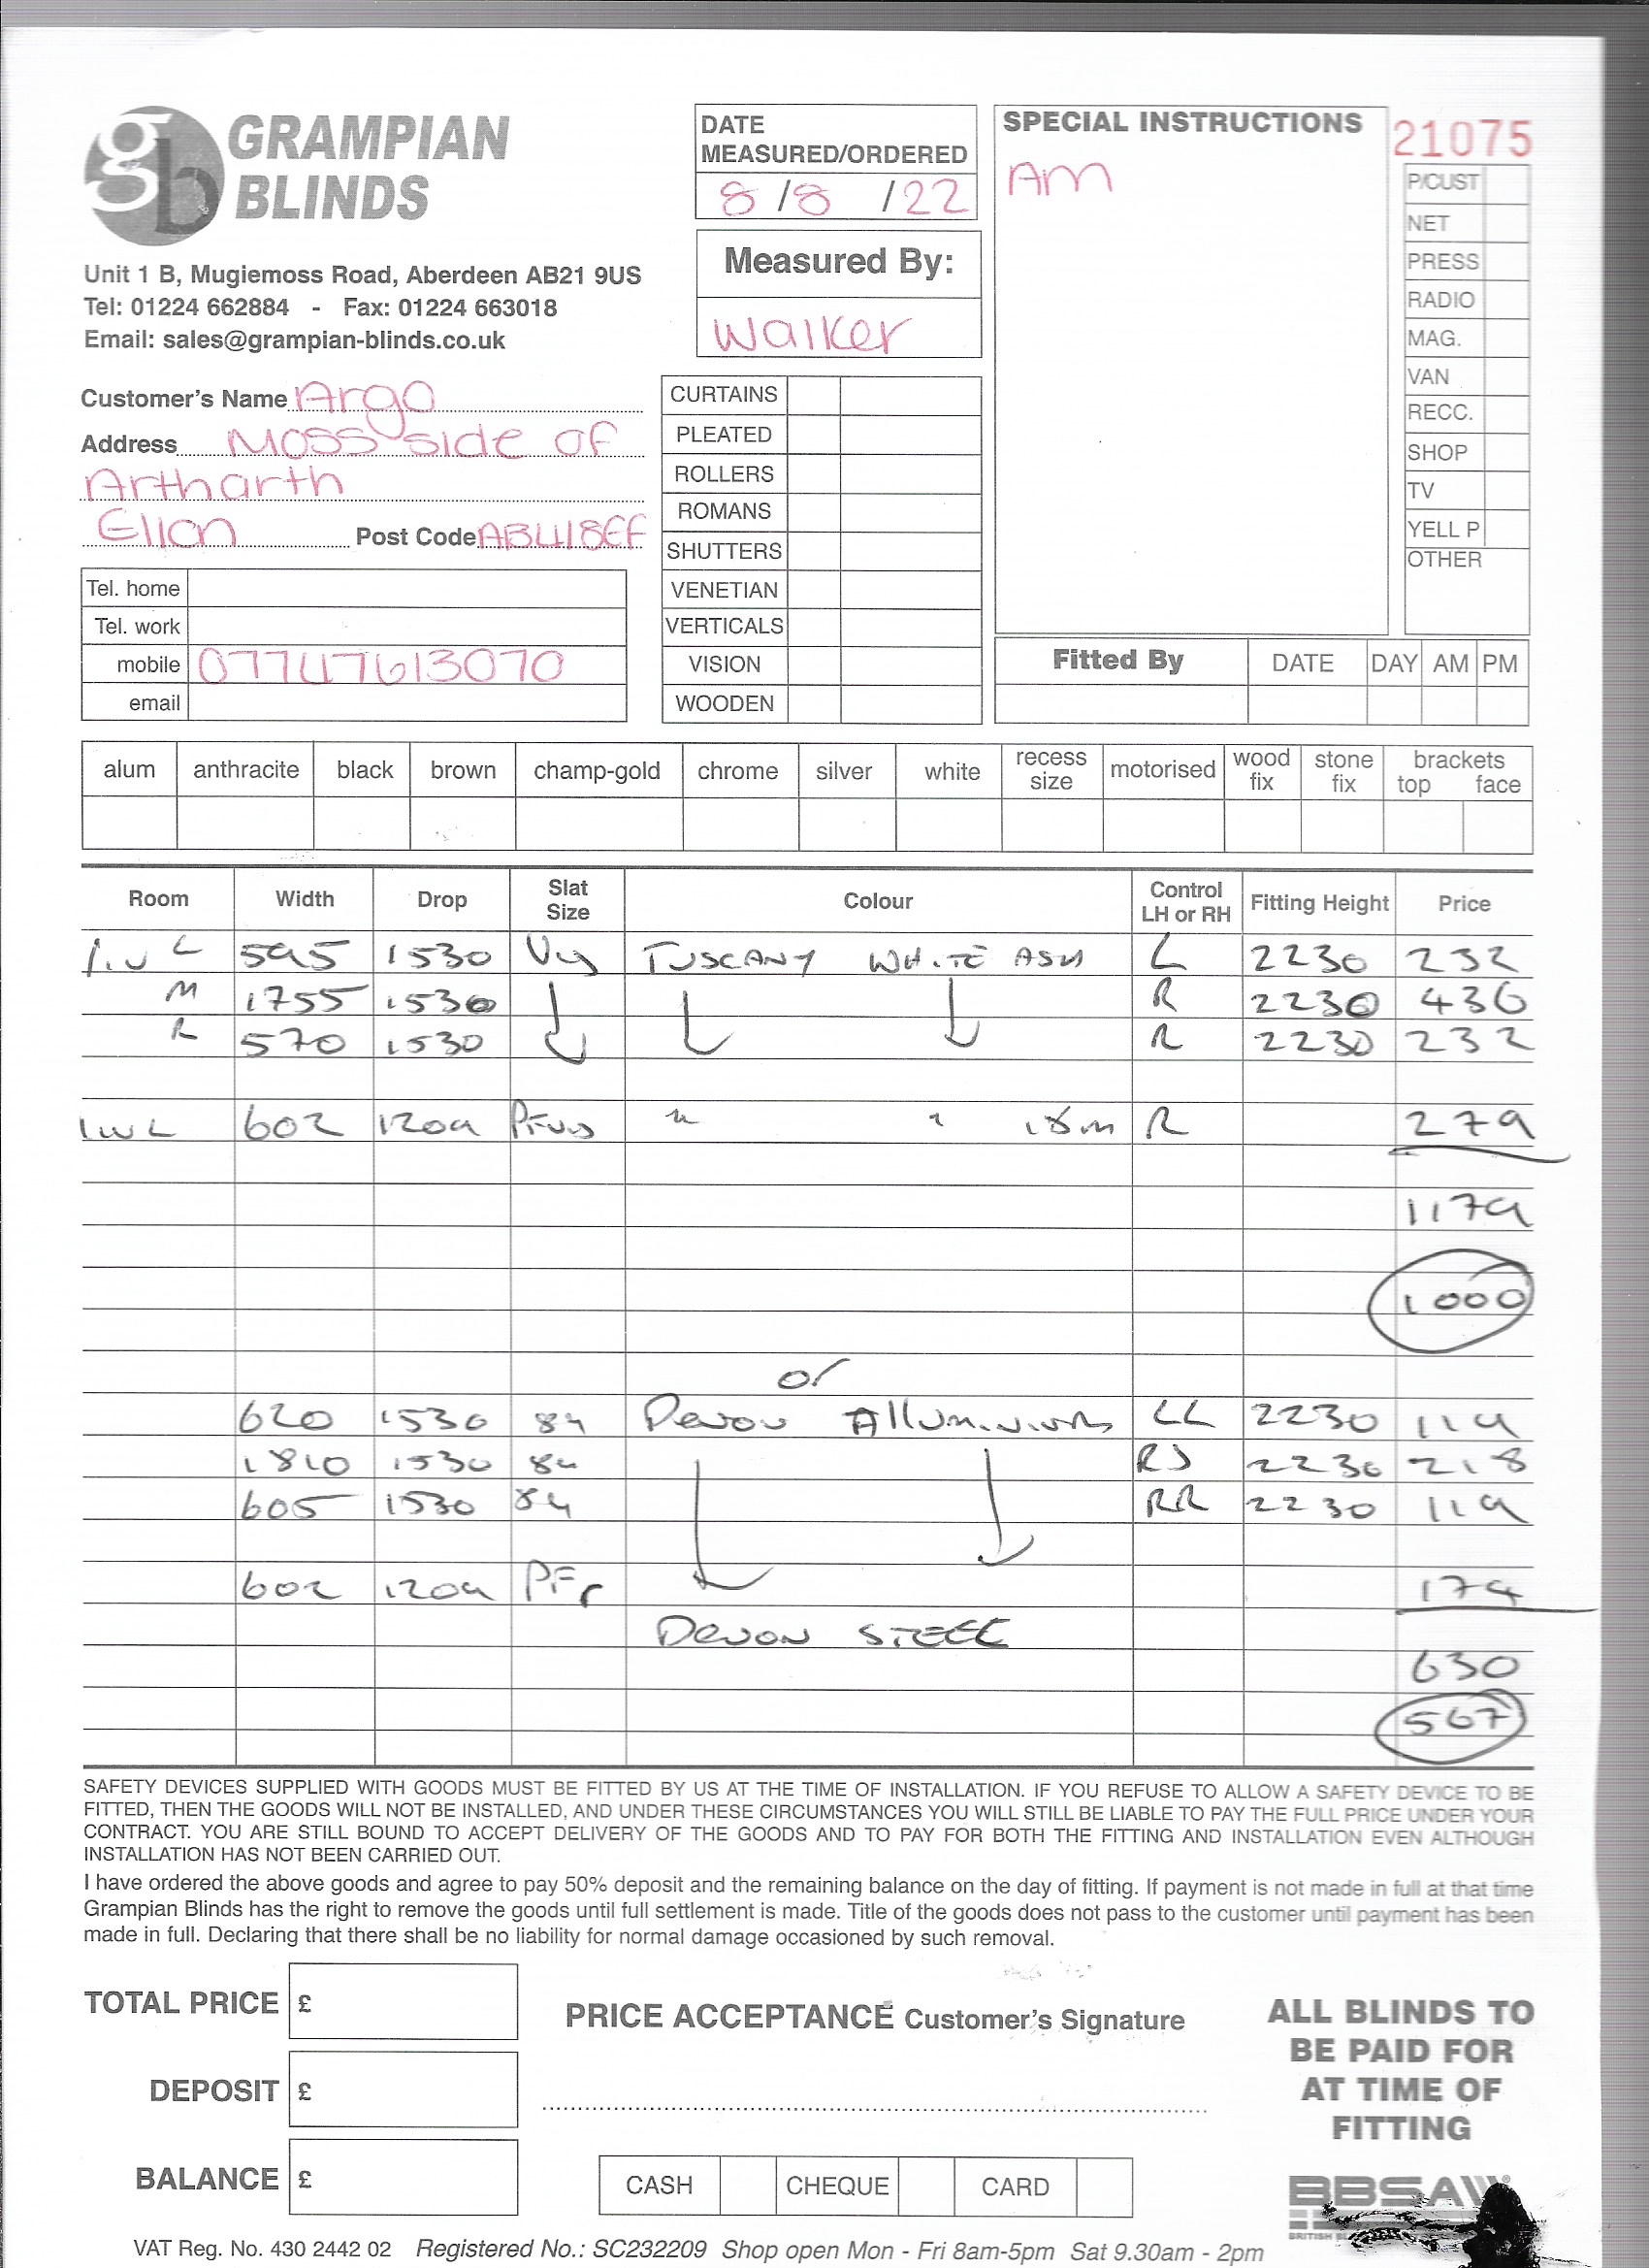 gb GRAMPIAN BLINDS
Unit 1 B, Mugiemoss Road, Aberdeen AB21 9US
Tel: 01224 662884 - Fax: 01224 663018
Email: sales@grampian-blinds.co.uk
DATE MEASURED/ORDERED
8/8/22
Measured By:
Walker
SPECIAL INSTRUCTIONS
AM
21075
P/CUST
NET
PRESS
RADIO
MAG.
VAN
RECC.
SHOP
TV
YELL P
OTHER
Customer's Name Argo
Address Moss side of
Artharth
Ellon Post Code AB41 8EF
Tel. home
Tel. work
mobile 07747613070
email
CURTAINS
PLEATED
ROLLERS
ROMANS
SHUTTERS
VENETIAN
VERTICALS
VISION
WOODEN
Fitted By DATE DAY AM PM
alum anthracite black brown champ-gold chrome silver white recess size motorised wood fix stone fix brackets top face
Room Width Drop Slat Size Colour Control LH or RH Fitting Height Price
L 595 1530 TUSCANY WHITE ASH L 2230 232
M 1755 1530 R 2230 436
R 570 1530 R 2230 232
602 1209 " " 18m R 279
1179
1000
or
620 1530 89 Devon Alluminium LL 2230 119
1810 1530 89 2230 218
605 1530 89 RR 2230 119
602 1209 PFr 174
DEVON STEEL
630
567
SAFETY DEVICES SUPPLIED WITH GOODS MUST BE FITTED BY US AT THE TIME OF INSTALLATION. IF YOU REFUSE TO ALLOW A SAFETY DEVICE TO BE
FITTED, THEN THE GOODS WILL NOT BE INSTALLED, AND UNDER THESE CIRCUMSTANCES YOU WILL STILL BE LIABLE TO PAY THE FULL PRICE UNDER YOUR
CONTRACT. YOU ARE STILL BOUND TO ACCEPT DELIVERY OF THE GOODS AND TO PAY FOR BOTH THE FITTING AND INSTALLATION EVEN ALTHOUGH
INSTALLATION HAS NOT BEEN CARRIED OUT.
I have ordered the above goods and agree to pay 50% deposit and the remaining balance on the day of fitting. If payment is not made in full at that time
Grampian Blinds has the right to remove the goods until full settlement is made. Title of the goods does not pass to the customer until payment has been
made in full. Declaring that there shall be no liability for normal damage occasioned by such removal.
TOTAL PRICE £
DEPOSIT £
BALANCE £
PRICE ACCEPTANCE Customer's Signature
CASH CHEQUE CARD
ALL BLINDS TO
BE PAID FOR
AT TIME OF
FITTING
BBSA
BRITISH
VAT Reg. No. 430 2442 02 Registered No.: SC232209 Shop open Mon - Fri 8am-5pm Sat 9.30am - 2pm